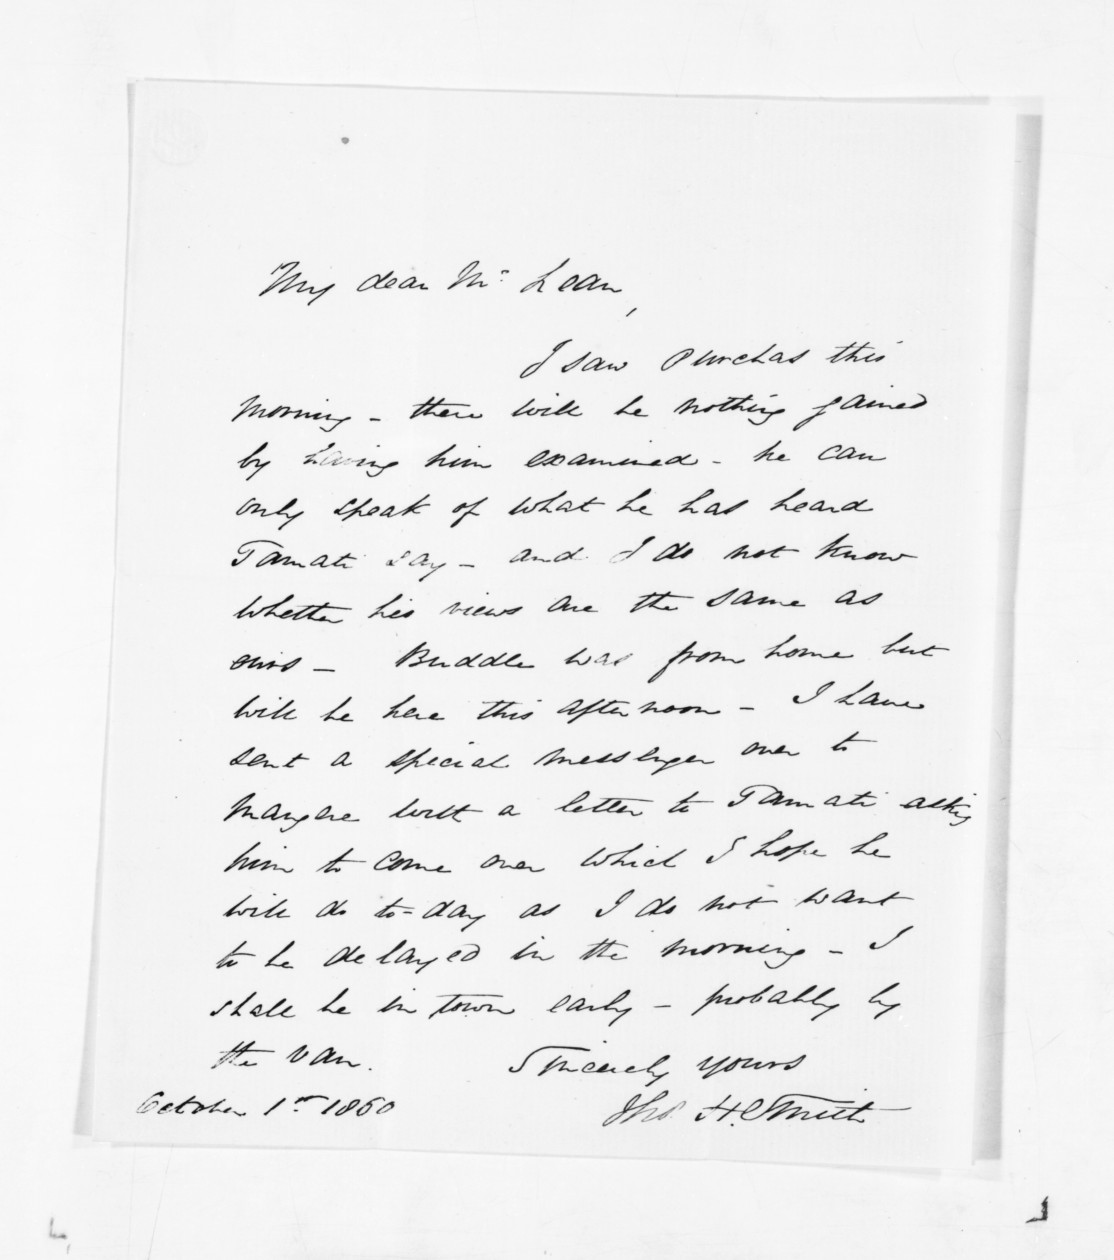 My dear Mr Lean,
I saw Purchas this
morning - there will be nothing gained
by having him examined - he can
only speak of what he has heard
Tamati say - and I do not know
whether his views are the same as
ours - Buddle was from home but
will be here this afternoon - I have
sent a special messenger over to
Mangare with a letter to Tamati asking
him to come over which I hope he
will do to-day as I do not want
to be delayed in the morning - I
shall be in town early - probably by
the van.
Sincerely yours
Thos. H. Smith
October 1st 1860